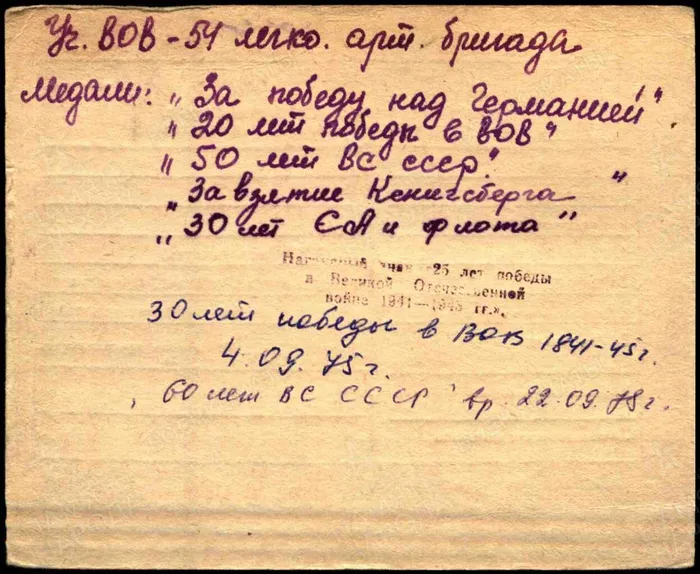 Уч. ВОВ - 54 легко. арт. бригада
Медали: „За победу над Германией"
„20 лет победы в ВОВ"
„50 лет ВС СССР"
„За взятие Кенигсберга"
„30 лет СА и флота"
Нагрудный знак «25 лет победы
в Великой Отечественной
войне 1941—1945 гг.».
30 лет победы в ВОВ 1841-45г.
4.09.75г.
60 лет ВС СССР вр. 22.09.79г.